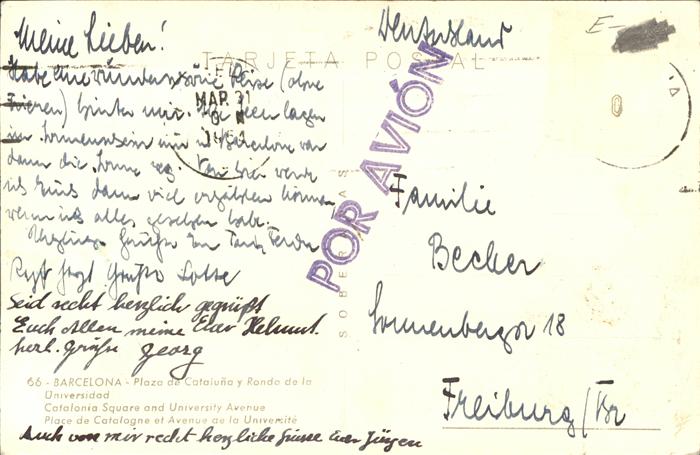 Meine Lieben!
Habe eine wunderschöne Reise (ohne
Frieren) hinter mir. Die Seen lagen
im Sonnenschein nur in Barcelona war
dann die Sonne weg. Von hier werde
ich Euch dann viel erzählen können
wenn ich alles gesehen habe.
Grüße
Grüße Lotte
Seid recht herzlich gegrüßt
Euch Allen meine Euer Helmut.
herzl. Grüße Georg
66 - BARCELONA - Plaza de Cataluña y Ronda de la
Universidad
Catalonia Square and University Avenue
Place de Catalogne et Avenue de la Université
Auch von mir recht herzliche Grüsse Euer Jürgen
TARJETA POSTAL
MAR 31
POR AVIÓN
SOBERANAS
Deutschland
E-
Familie
Becker
Sonnenbergstr 18
Freiburg/Br